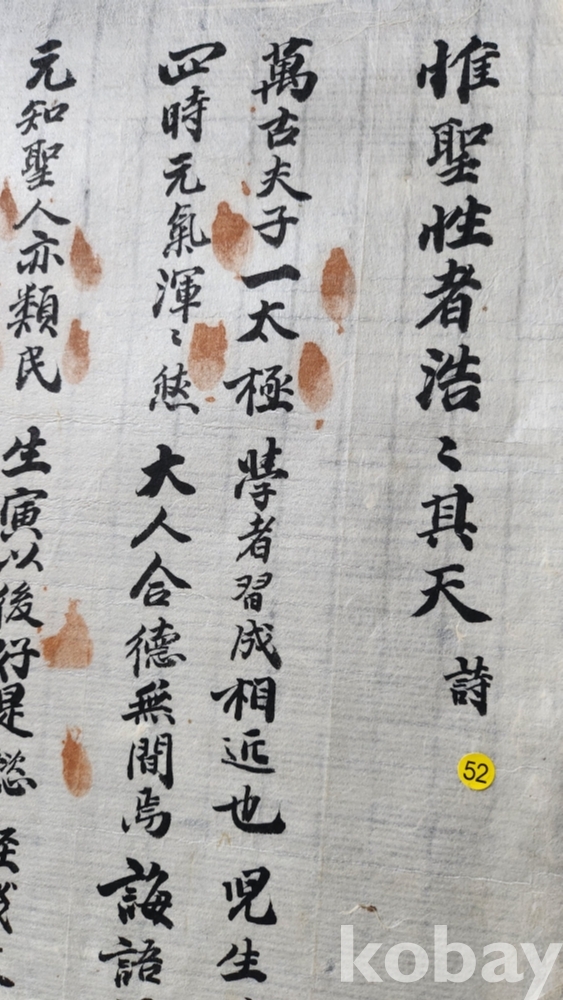 惟聖性者浩〻其天 詩
萬古夫子一太極 學者習成相近也 児生
四時元氣渾〻然 大人合德無間焉 誨語
元知聖人亦類民 生寅以後 是 至誠
52
kobay